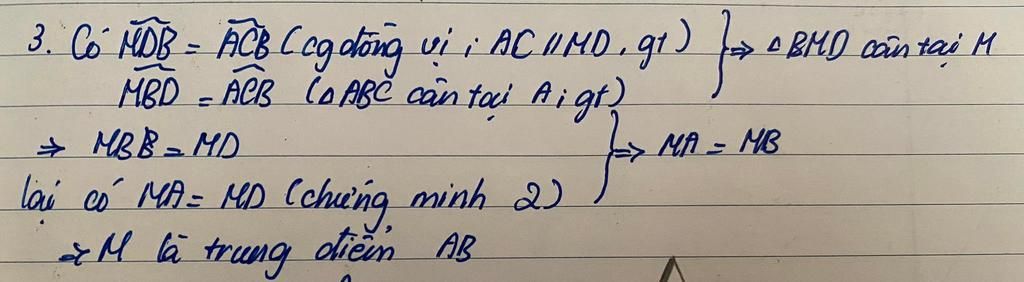 3. Có MDB = ACB (cg đồng vị ; AC // MD, gt) } ⇒ △BMD cân tại M
MBD = ACB (△ABC cân tại A ; gt)
⇒ MB = MD } ⇒ MA = MB
lại có MA = MD (chứng minh 2)
⇒ M là trung điểm AB